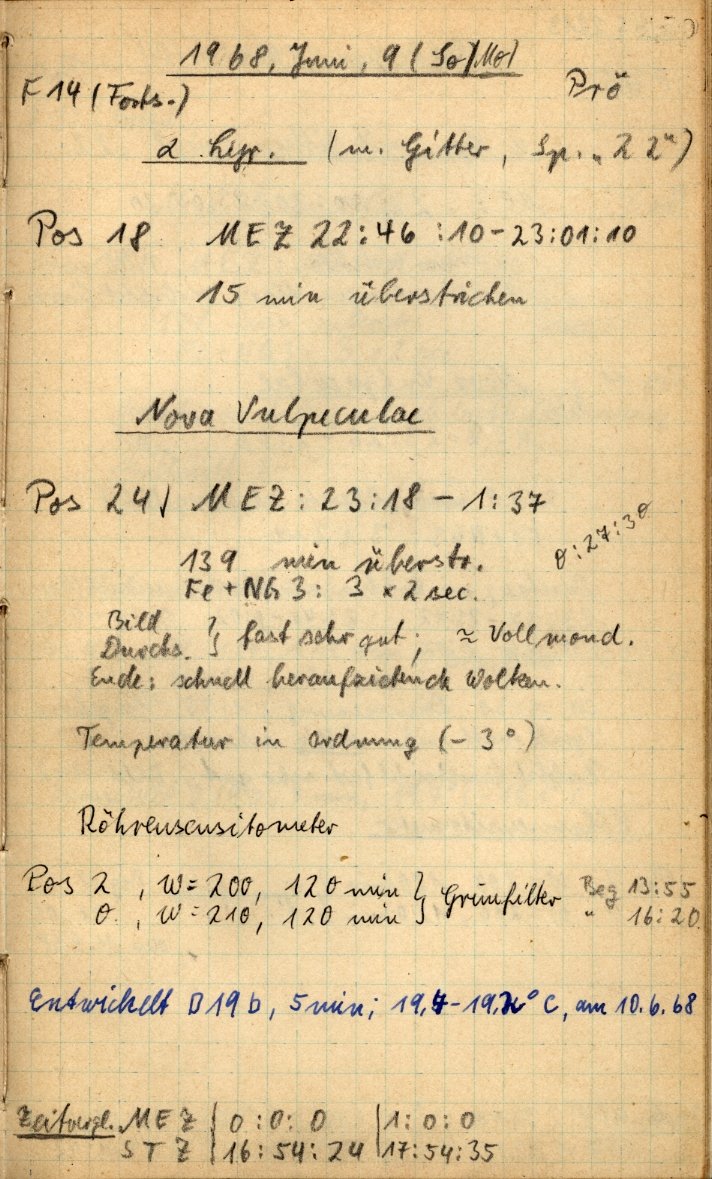 1968, Juni, 9 (So/Mo)
F 14 (Forts.) Prö
α Lyr. (m. Gitter, Sp. „22")
Pos 18 MEZ 22:46:10-23:01:10
15 min überstrichen
Nova Vulpeculae
Pos 24 MEZ: 23:18 - 1:37
0:27:30
139 min überstr.
Fe + 3: 3 x 2 sec.
Bild
Durchs. } fast sehr gut; ≈ Vollmond.
Ende: schnell heraufziehende Wolken.
Temperatur in Ordnung (-3°)
Röhrensensitometer
Pos 2, W=200, 120 min } Grünfilter Beg 13:55
0, W=210, 120 min } " 16:20
Entwickelt D19b, 5 min; °C, am 10.6.68
Zeitvergl. MEZ | 0:0:0 | 1:0:0
STZ | 16:54:24 | 17:54:35